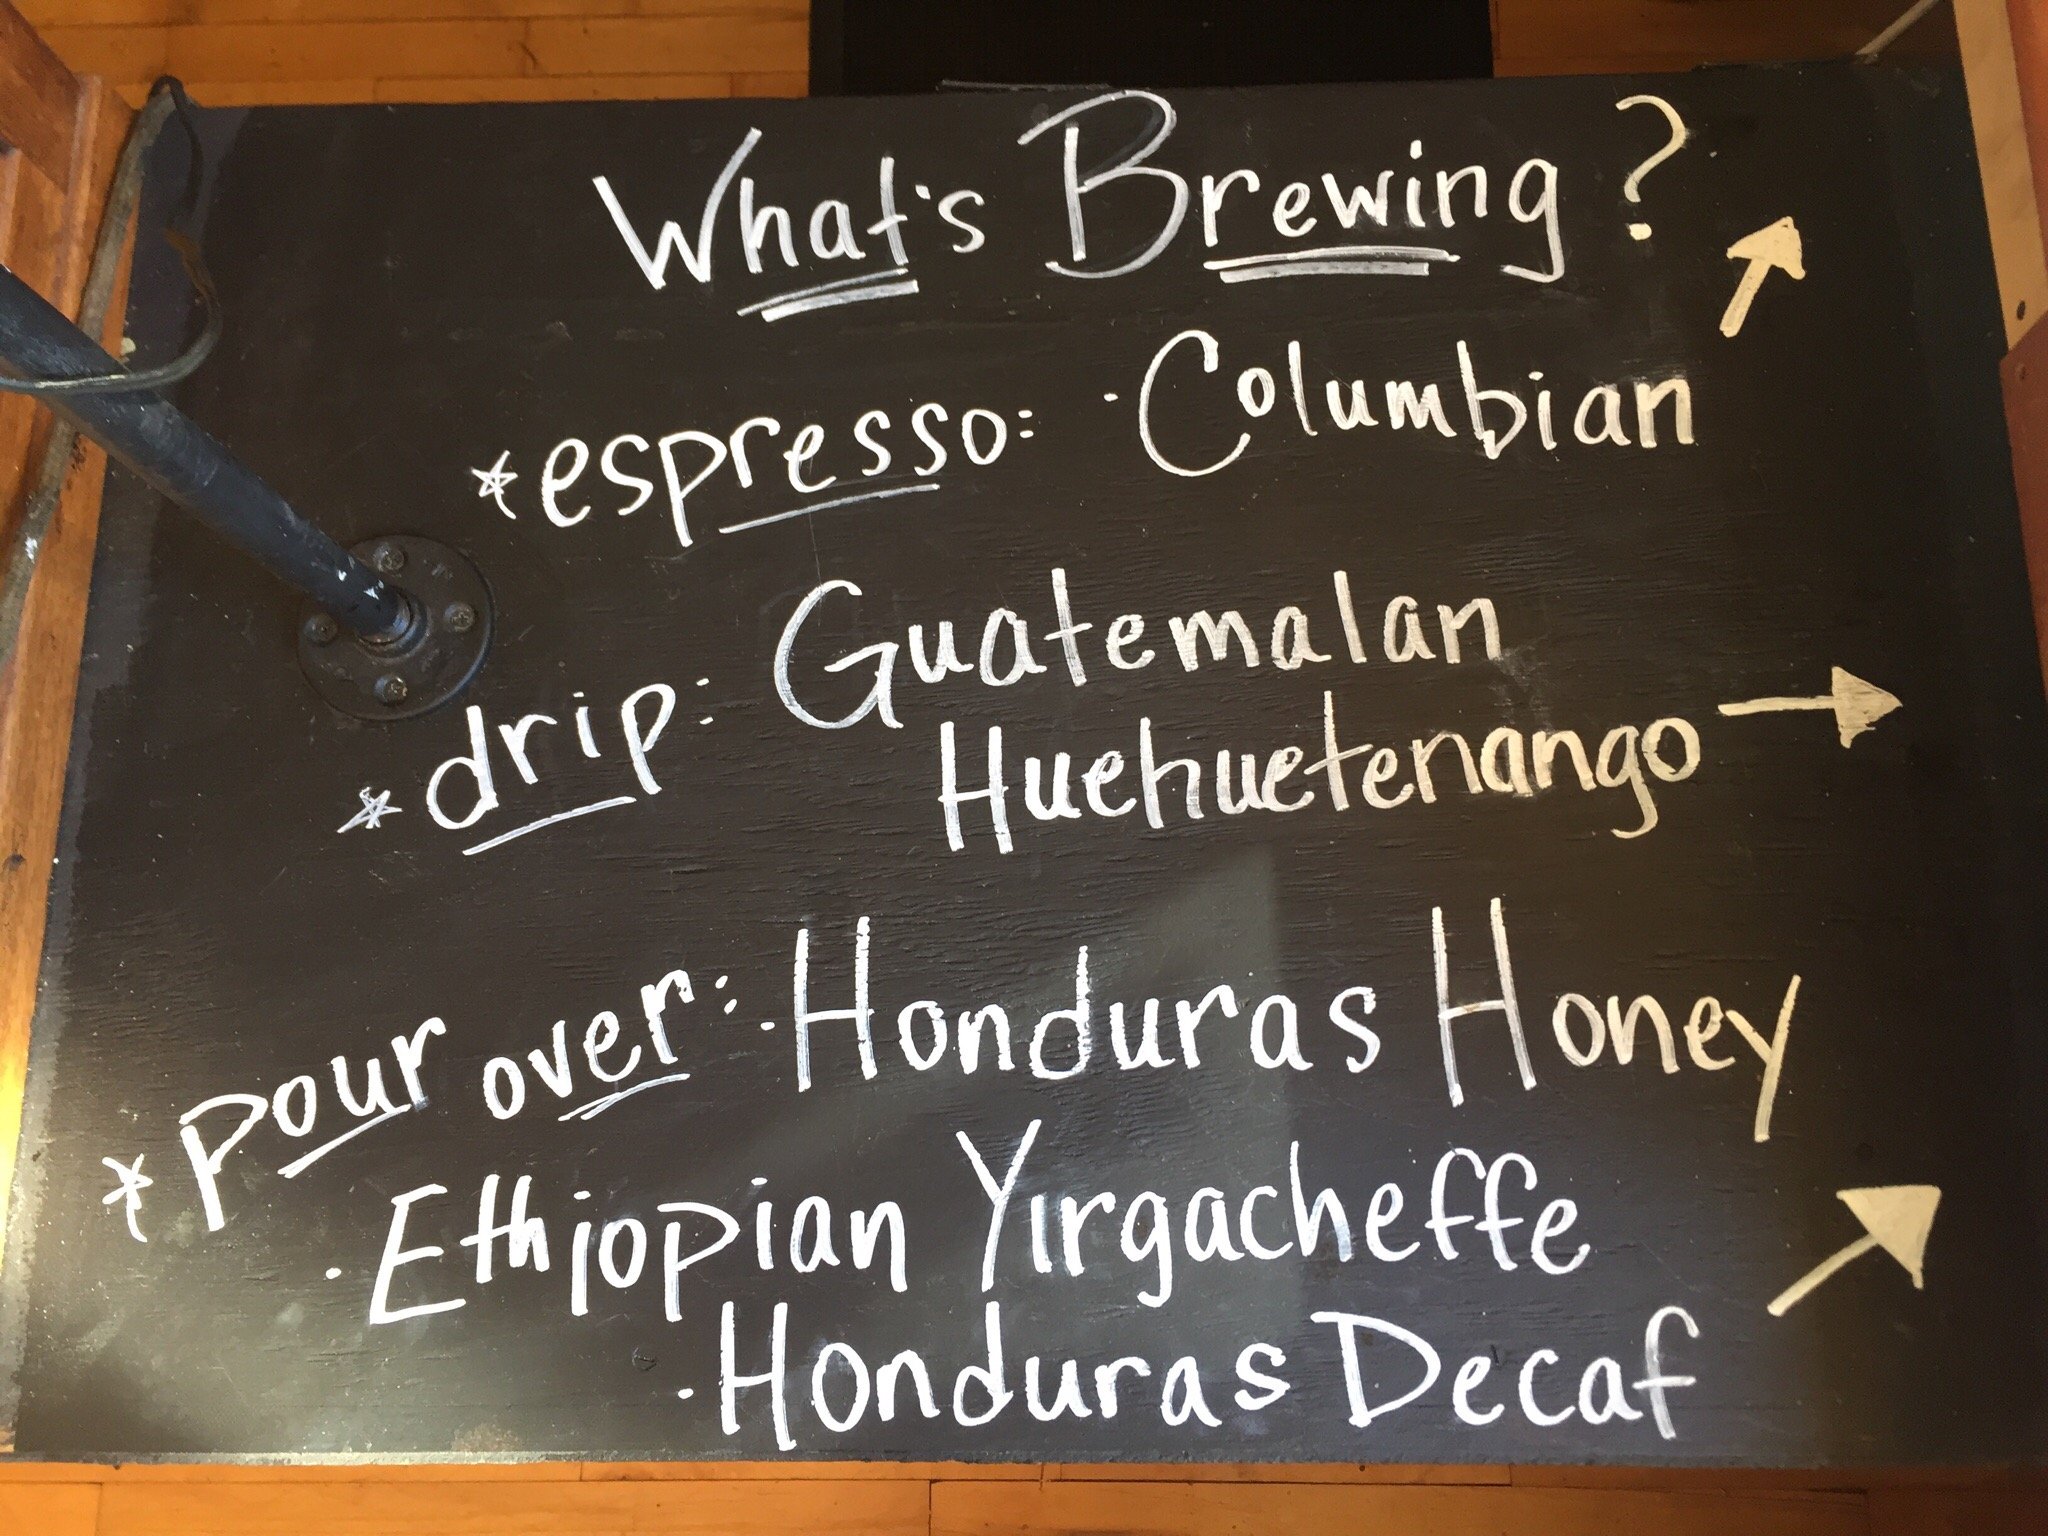 What's Brewing?
*espresso: ·Columbian
*drip: Guatemalan
Huehuetenango
*pour over: ·Honduras Honey
·Ethiopian Yirgacheffe
·Honduras Decaf